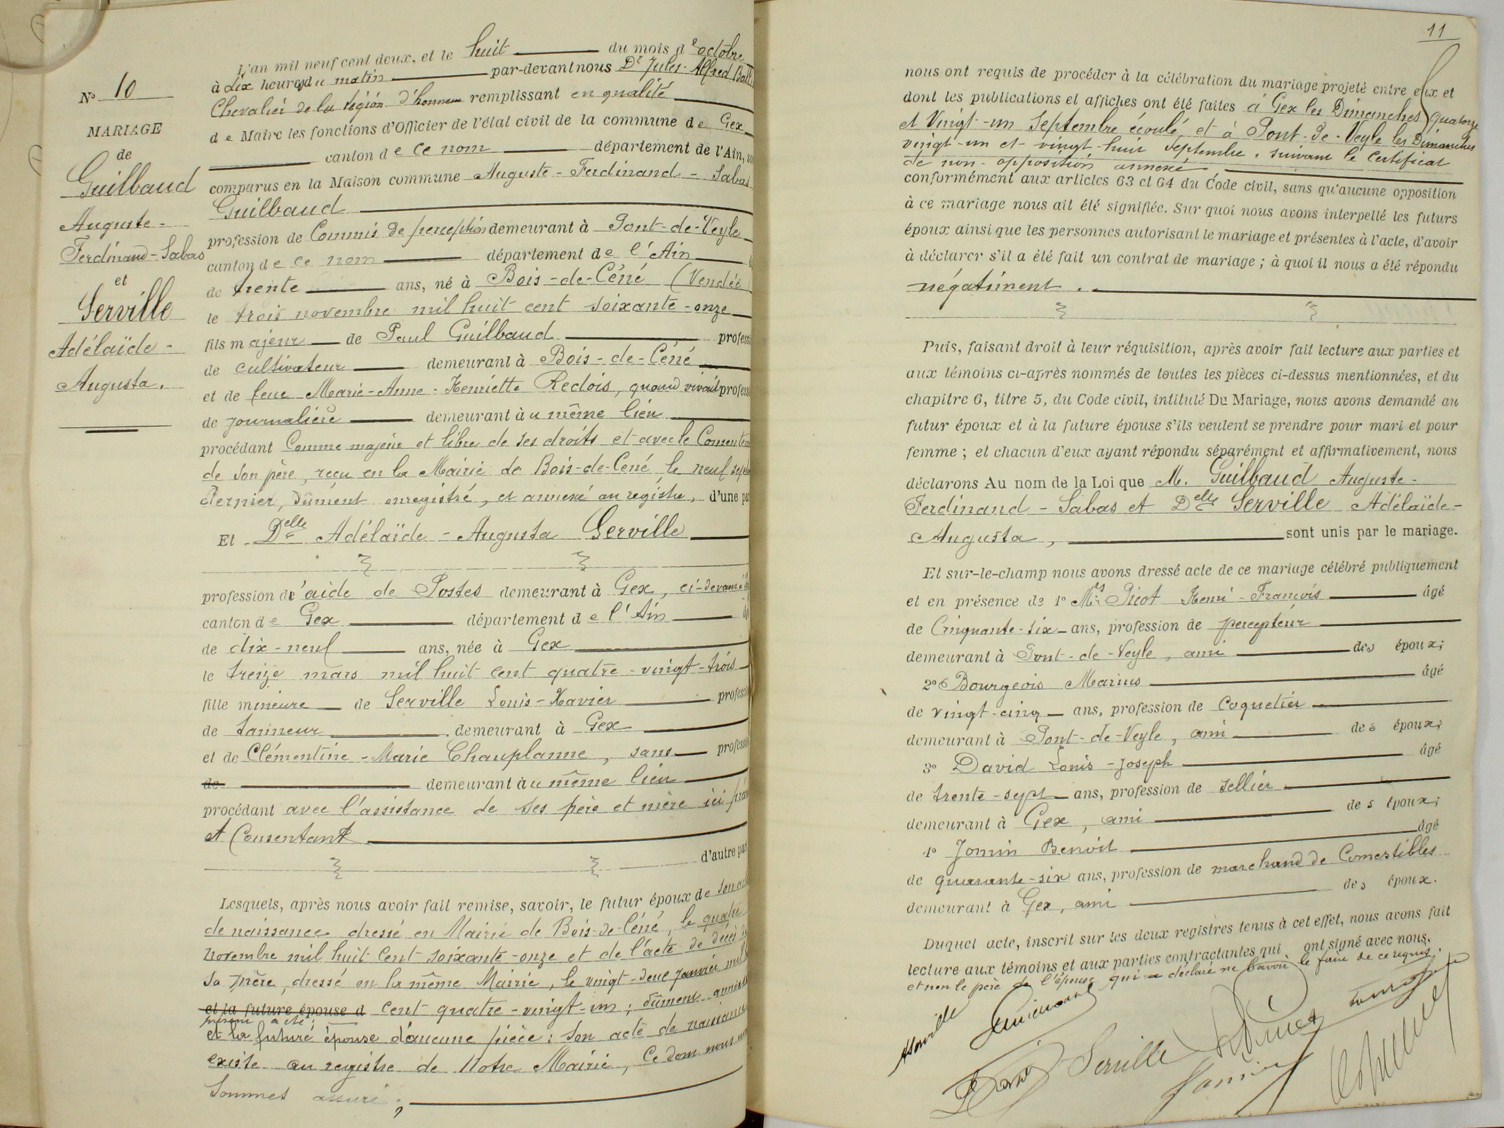 N° 10
MARIAGE
de
Guilbaud
Auguste-
Ferdinand-Sabas
et
Serville
Adélaïde-
Augusta.
L'an mil neuf cent deux, et le huit du mois d'octobre
à dix heures du matin par-devant nous Dr Jules-Alfred
Chevalier de la légion d'honneur remplissant en qualité
de Maire les fonctions d'Officier de l'état civil de la commune de Gex
canton de ce nom département de l'Ain,
comparus en la Maison commune Auguste-Ferdinand-Sabas
Guilbaud
profession de Commis de perception demeurant à Pont-de-Veyle
canton de ce nom département de l'Ain
de trente ans, né à Bois-de-Céné (Vendée
le trois novembre mil huit cent soixante-onze
fils majeur de Paul Guilbaud profess
de cultivateur demeurant à Bois-de-Céné
et de feue Marie-Anne-Henriette Redois, quand vivait profess
de journalière demeurant au même lieu
procédant comme majeur et libre de ses droits et avec le Consente
de son père, reçu en la Mairie de Bois-de-Céné le neuf sept
Dernier, Dûment enregistré, et annexé au registre, d'une pa
Et Delle Adélaïde-Augusta Serville
profession d'aide de Postes demeurant à Gex, ci-devant
canton de Gex département de l'Ain
de dix-neuf ans, née à Gex
le treize mars mil huit cent quatre-vingt-trois
fille mineure de Serville Louis-Xavier profess
de Tanneur demeurant à Gex
et de Clémentine-Marie Chauplanne, sans profess
de demeurant au même lieu
procédant avec l'assistance de ses père et mère ici
et Consentant
d'autre par
Lesquels, après nous avoir fait remise, savoir, le futur époux de son
de naissance dressé en Mairie de Bois-de-Céné, le quatre
novembre mil huit cent soixante-onze et de l'acte de décès
sa mère, dressé en la même Mairie, le vingt-deux janvier mil
et la future épouse d cent quatre-vingt-un; dûment annexés
et la future épouse d'aucune pièce; son acte de naissance
existe au registre de Notre Mairie, Ce dont nous
sommes assuré;
11
nous ont requis de procéder à la célébration du mariage projeté entre eux et
dont les publications et affiches ont été faites à Gex les Dimanches quatorze
et Vingt-un Septembre écoulé, et à Pont-de-Veyle les Dimanches
vingt-un et vingt-huit Septembre, suivant le certificat
de non-opposition annexé
conformément aux articles 63 et 64 du Code civil, sans qu'aucune opposition
à ce mariage nous ait été signifiée. Sur quoi nous avons interpellé les futurs
époux ainsi que les personnes autorisant le mariage et présentes à l'acte, d'avoir
à déclarer s'il a été fait un contrat de mariage; à quoi il nous a été répondu
négativement.
Puis, faisant droit à leur réquisition, après avoir fait lecture aux parties et
aux témoins ci-après nommés de toutes les pièces ci-dessus mentionnées, et du
chapitre 6, titre 5, du Code civil, intitulé Du Mariage, nous avons demandé au
futur époux et à la future épouse s'ils veulent se prendre pour mari et pour
femme; et chacun d'eux ayant répondu séparément et affirmativement, nous
déclarons Au nom de la Loi que M. Guilbaud Auguste-
Ferdinand-Sabas et Delle Serville Adélaïde-
Augusta, sont unis par le mariage.
Et sur-le-champ nous avons dressé acte de ce mariage célébré publiquement
et en présence de 1° Mrs Picot Henri-François âgé
de Cinquante-six ans, profession de percepteur
demeurant à Pont-de-Veyle, ami des époux;
2° Bourgeois Marius âgé
de vingt-cinq ans, profession de Coquetier
demeurant à Pont-de-Veyle, ami des époux;
3° David Louis-Joseph âgé
de trente-sept ans, profession de sellier
demeurant à Gex, ami des époux;
4° Jomin Benoit âgé
de quarante-six ans, profession de marchand de Comestibles
demeurant à Gex, ami des époux.
Duquel acte, inscrit sur les deux registres tenus à cet effet, nous avons fait
lecture aux témoins et aux parties contractantes qui ont signé avec nous,
et non le père de l'épouse qui a déclaré ne savoir le faire de ce requis.
AServille
Serville
Jomin